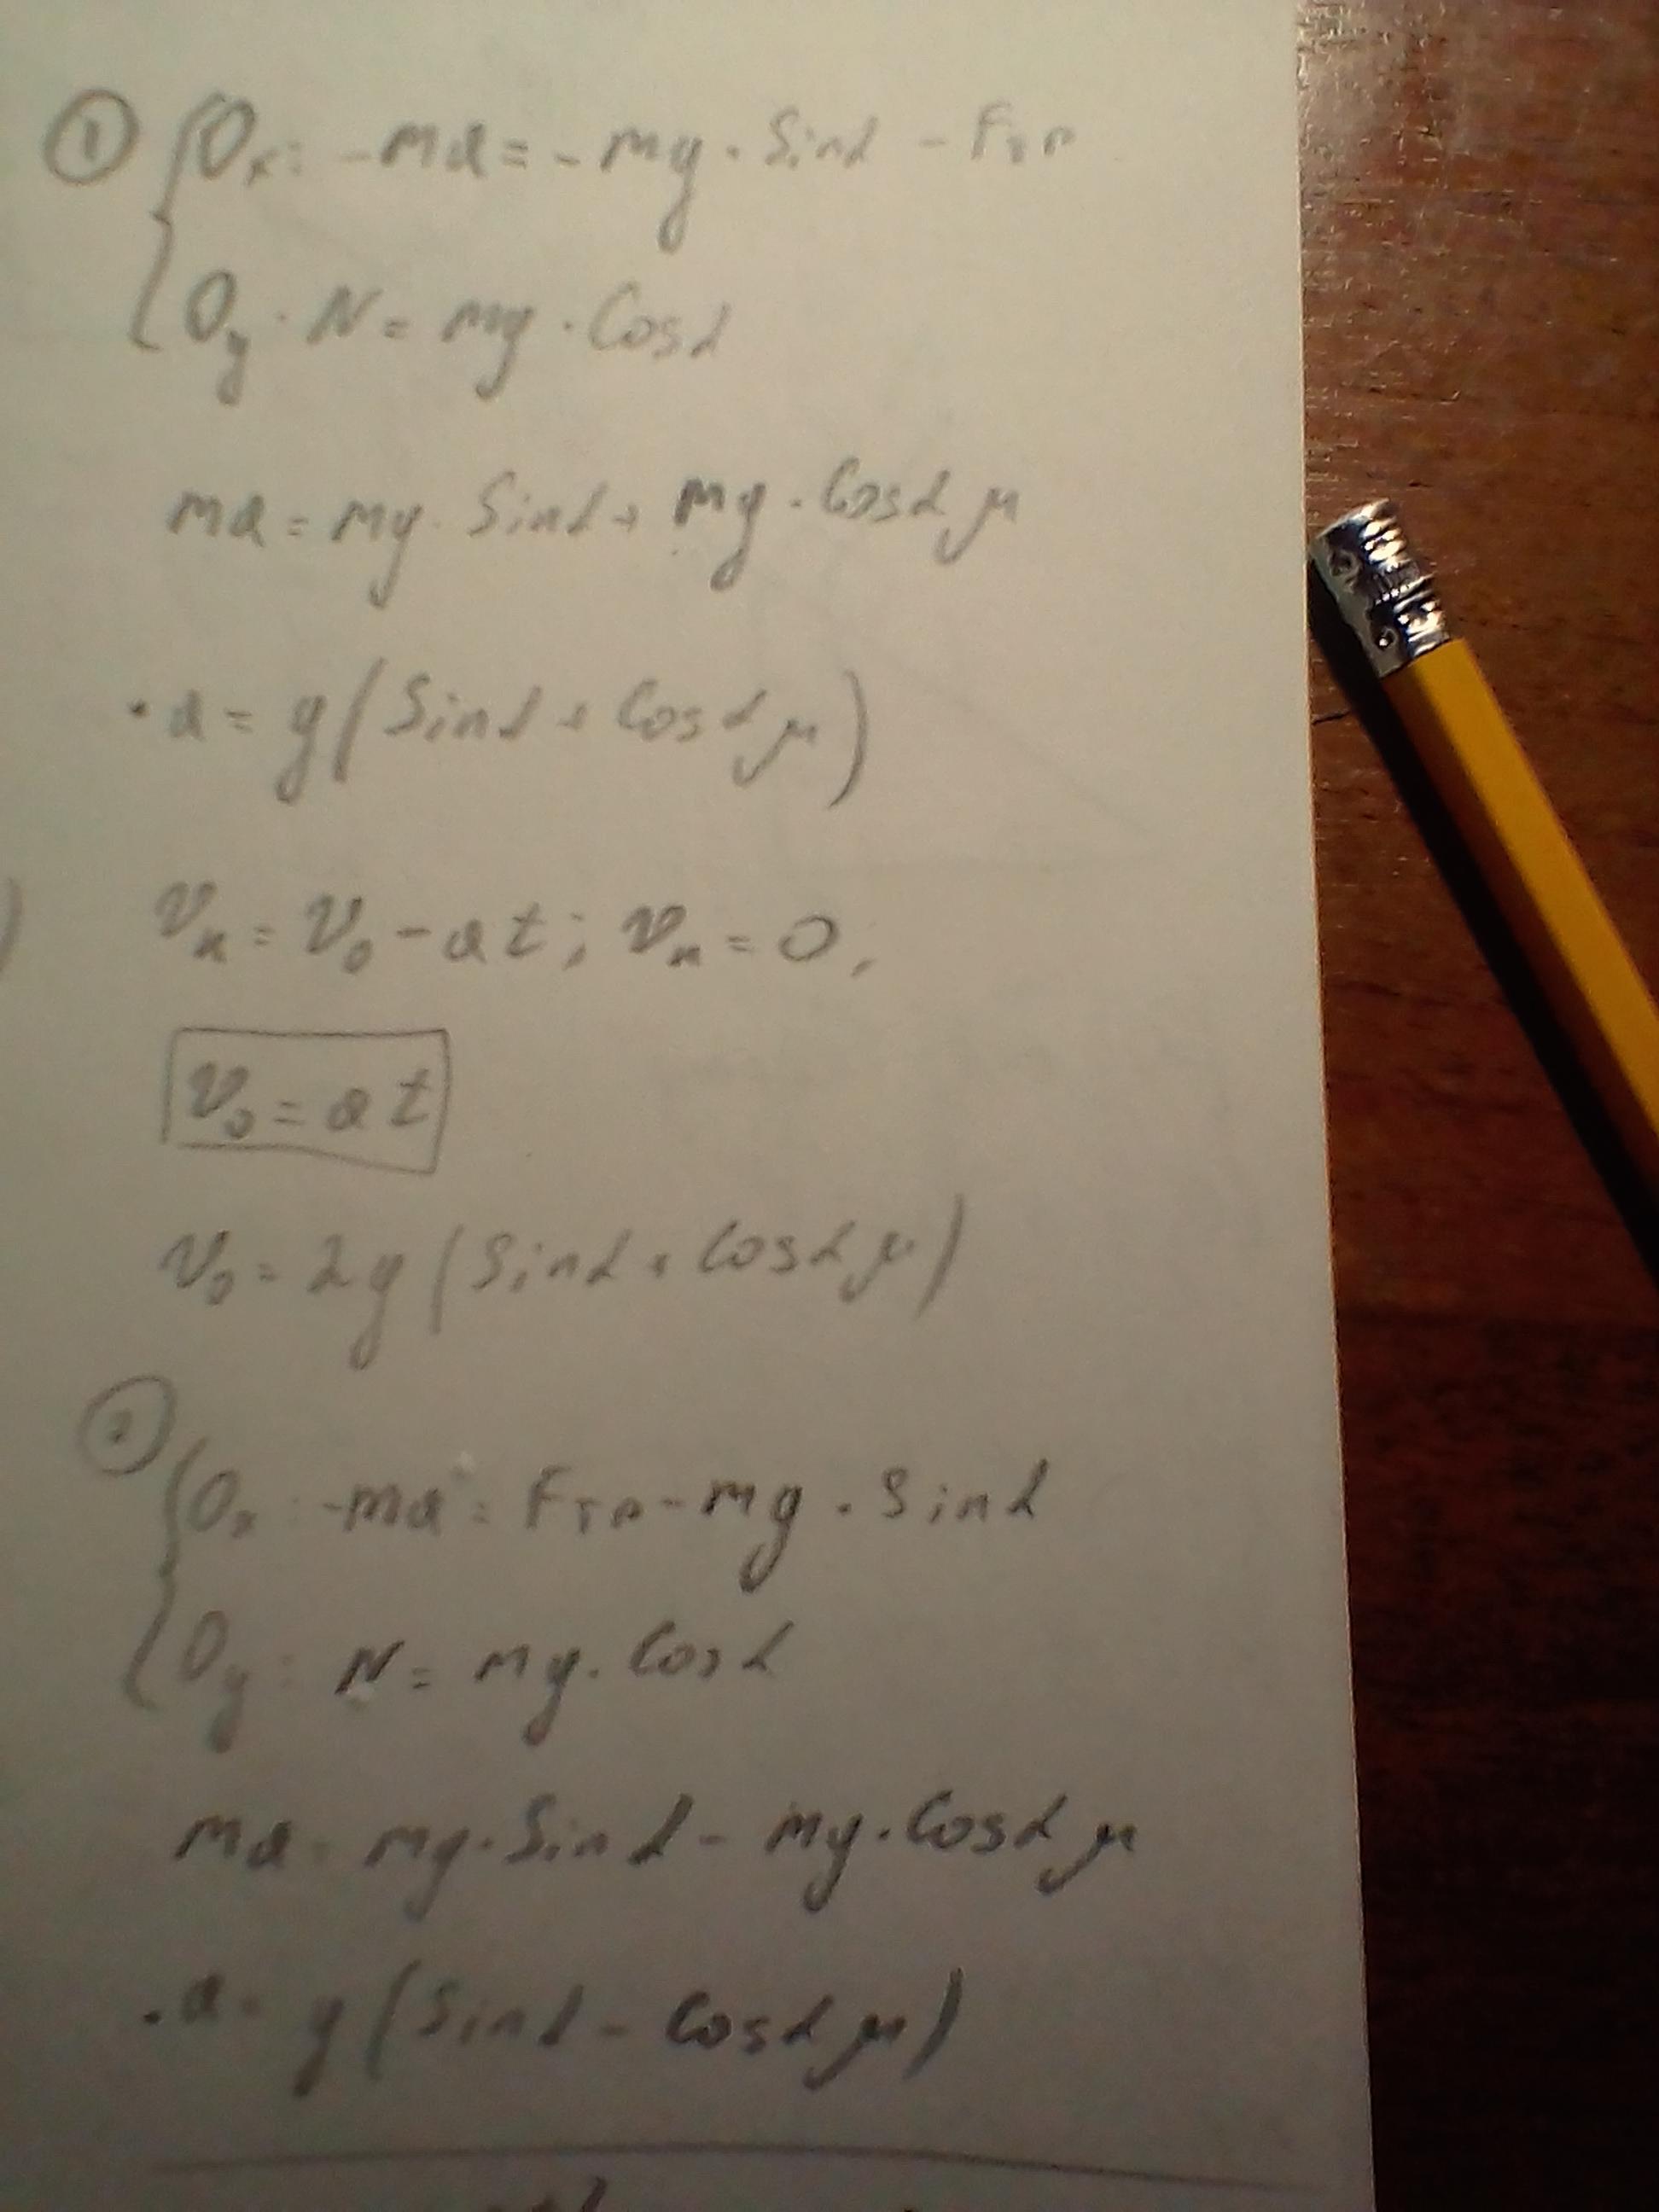 ① { Ox: -ma = -mg · Sinα - Fтр
Oy · N = mg · Cosα
ma = mg · Sinα + mg · Cosα μ
· a = g(Sinα + Cosα μ)
vк = v₀ - at; vк = 0;
v₀ = at
v₀ = 2g(Sinα + Cosα μ)
② { Ox: -ma = Fтр - mg · Sinα
Oy: N = mg · Cosα
ma = mg · Sinα - mg · Cosα μ
· a = g(Sinα - Cosα μ)